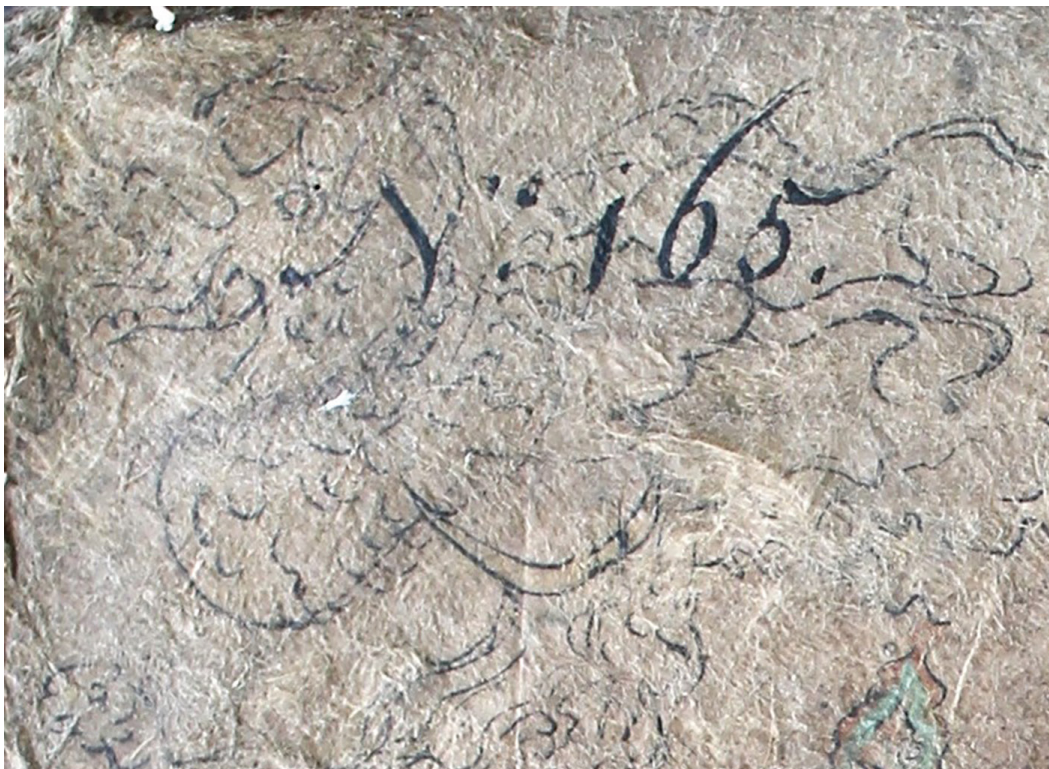 N: 165.